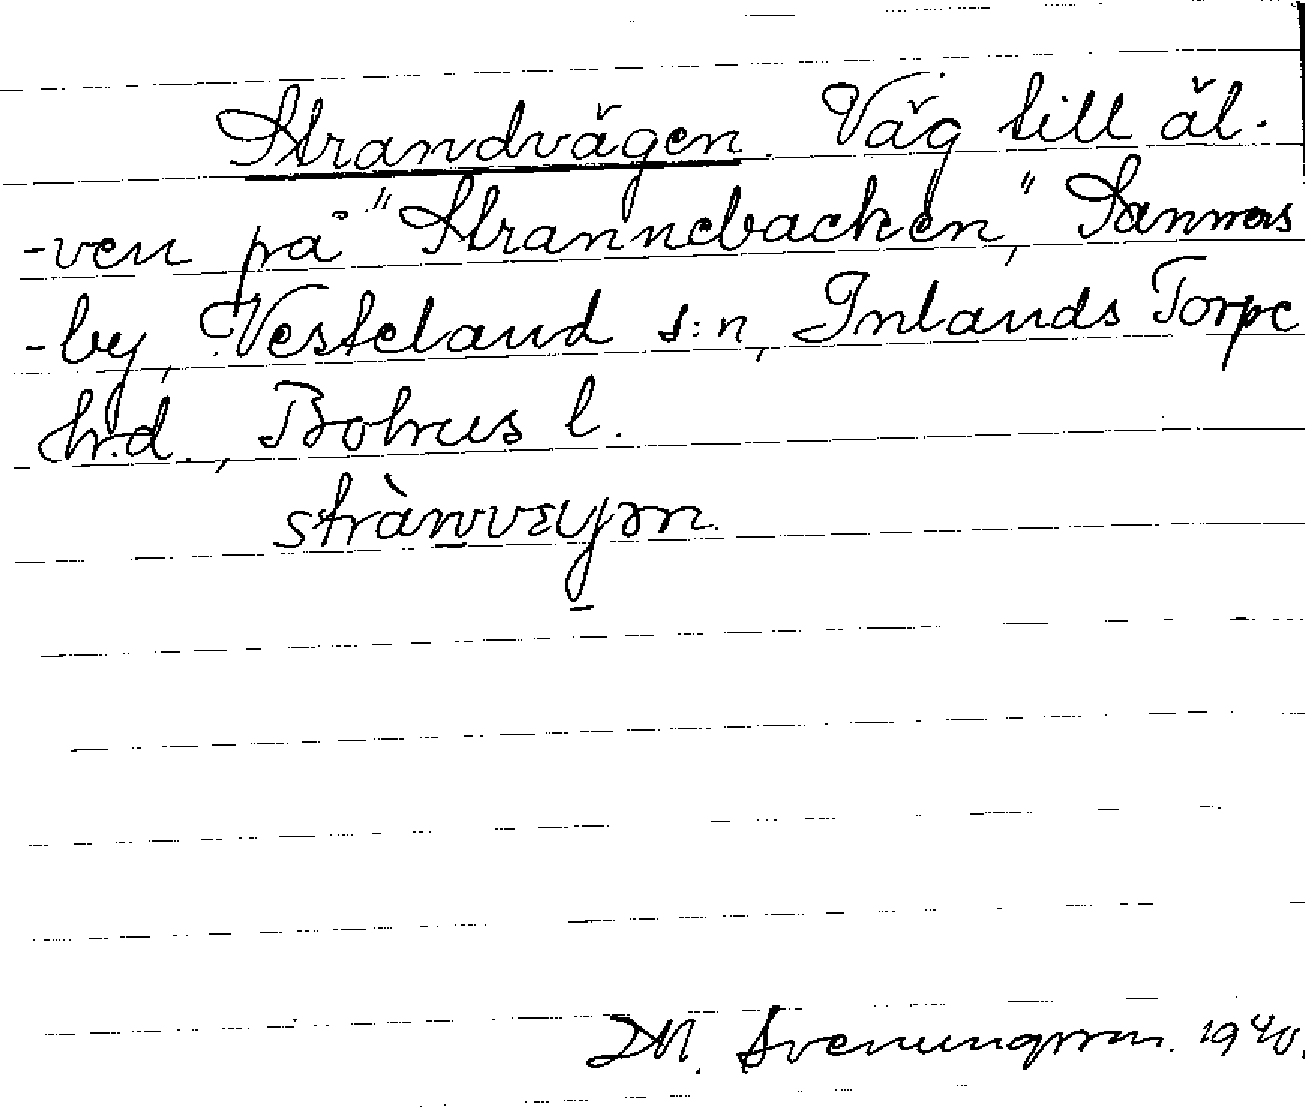 Strandvägen. Väg till äl-
-ven på "Strannebacken", Sanners
-by, Vesteland s:n, Inlands Torpe
hr.d., Bohus l.
strànvεyən
M. Svenungsson. 1940.